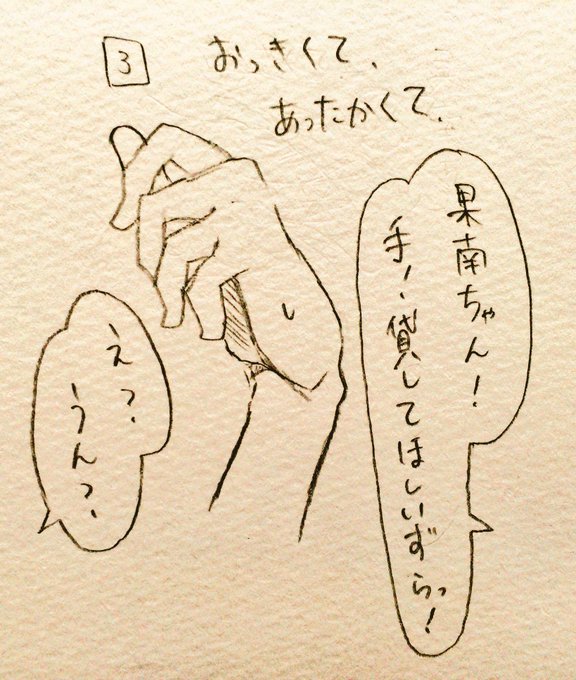 3
おっきくて、
あったかくて、
果南ちゃん!
手、貸してほしいずらっ!
えっ、
うんっ、